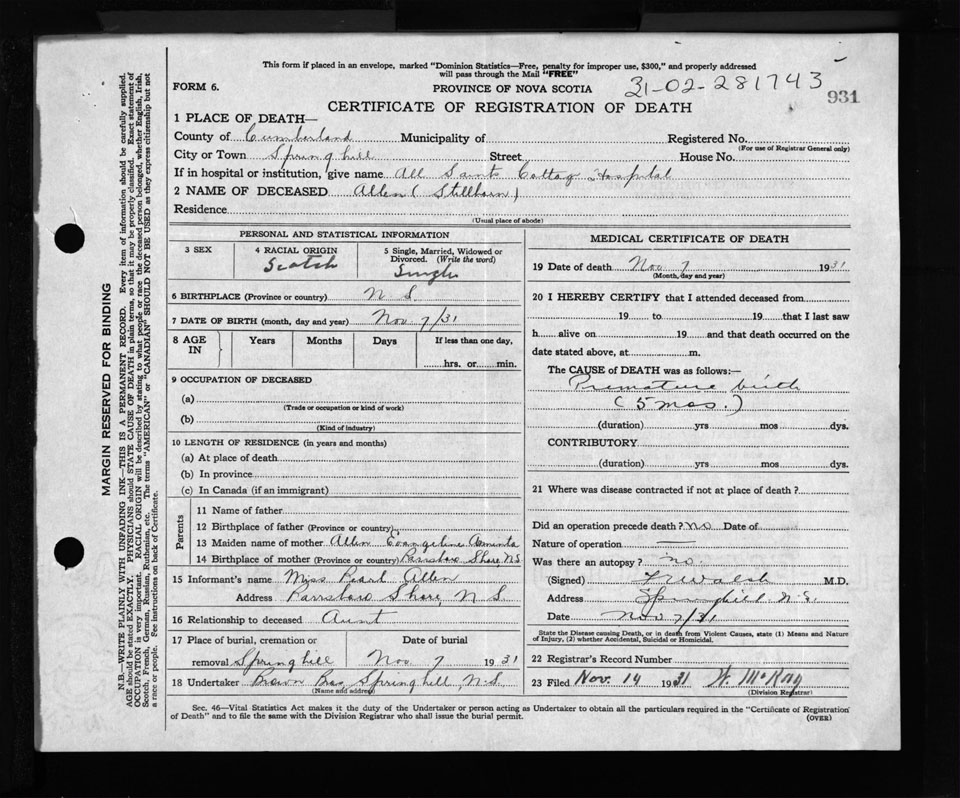 This form if placed in an envelope, marked "Dominion Statistics—Free, penalty for improper use, $300," and properly addressed
will pass through the Mail "FREE"
FORM 6.
PROVINCE OF NOVA SCOTIA
31-02-281743
931
CERTIFICATE OF REGISTRATION OF DEATH
1 PLACE OF DEATH—
County of Cumberland Municipality of Registered No.
(For use of Registrar General only)
City or Town Springhill Street House No.
If in hospital or institution, give name All Saints Cottag Hospital
2 NAME OF DECEASED Allen (Stillborn)
Residence
(Usual place of abode)
PERSONAL AND STATISTICAL INFORMATION
3 SEX
4 RACIAL ORIGIN
Scotch
5 Single, Married, Widowed or
Divorced. (Write the word)
Single
6 BIRTHPLACE (Province or country) N S
7 DATE OF BIRTH (month, day and year) Nov 7/31
8 AGE IN
Years
Months
Days
If less than one day,
hrs. or min.
9 OCCUPATION OF DECEASED
(a)
(Trade or occupation or kind of work)
(b)
(Kind of industry)
10 LENGTH OF RESIDENCE (in years and months)
(a) At place of death
(b) In province
(c) In Canada (if an immigrant)
Parents
11 Name of father
12 Birthplace of father (Province or country)
13 Maiden name of mother Allen Evangeline
14 Birthplace of mother (Province or country) Parrsboro Shore NS
15 Informant's name Miss Pearl Allen
Address Parrsboro Shore, N S
16 Relationship to deceased Aunt
17 Place of burial, cremation or
removal Springhill
Date of burial
Nov 7 1931
18 Undertaker Brown Bros Springhill, N.S.
(Name and address)
MEDICAL CERTIFICATE OF DEATH
19 Date of death Nov 7 1931
(Month, day and year)
20 I HEREBY CERTIFY that I attended deceased from
19 to 19 that I last saw
h alive on 19 and that death occurred on the
date stated above, at m.
The CAUSE of DEATH was as follows:—
Premature birth
(5 mos.)
(duration) yrs mos dys.
CONTRIBUTORY
(duration) yrs mos dys.
21 Where was disease contracted if not at place of death?
Did an operation precede death? no Date of
Nature of operation —
Was there an autopsy? no.
(Signed) Walsh M.D.
Address Springhill N.S.
Date Nov 7/31
State the Disease causing Death, or in death from Violent Causes, state (1) Means and Nature
of Injury, (2) whether Accidental, Suicidal or Homicidal.
22 Registrar's Record Number
23 Filed Nov. 14 1931 W. McKay
(Division Registrar)
Sec. 46—Vital Statistics Act makes it the duty of the Undertaker or person acting as Undertaker to obtain all the particulars required in the "Certificate of Registration
of Death" and to file the same with the Division Registrar who shall issue the burial permit.
(OVER)
MARGIN RESERVED FOR BINDING
N.B.—WRITE PLAINLY WITH UNFADING INK—THIS IS A PERMANENT RECORD. Every item of information should be carefully supplied.
AGE should be stated EXACTLY. PHYSICIANS should STATE CAUSE OF DEATH in plain terms, so that it may be properly classified. Exact statement of
OCCUPATION is very important. RACIAL ORIGIN will be described by stating to what people or race the deceased person belonged, whether English, Irish,
Scotch, French, German, Russian, Ruthenian, etc. The terms "AMERICAN" or "CANADIAN" SHOULD NOT BE USED as they express citizenship but not
a race or people. See instructions on back of Certificate.